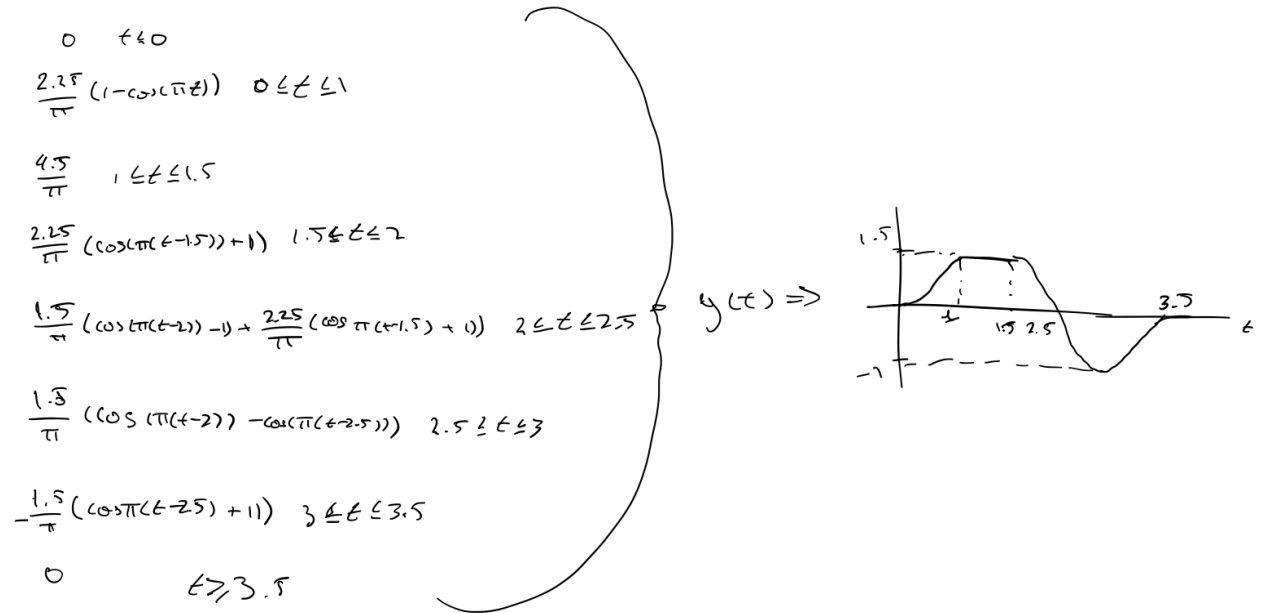 0 t≤0
2.25/π (1-cos(πt)) 0≤t≤1
4.5/π 1≤t≤1.5
2.25/π (cos(π(t-1.5))+1) 1.5≤t≤2
1.5/π (cos(π(t-2))-1)+ 2.25/π (cos π(t-1.5)+1)) 2≤t≤2.5
y(t) ⇒
1.5/π (cos(π(t-2)) -cos(π(t-2.5))) 2.5≤t≤3
-1.5/π (cosπ(t-2.5)+1)) 3≤t≤3.5
0 t≥3.5
1.5
1 1.5 2.5 3.5 t
-1